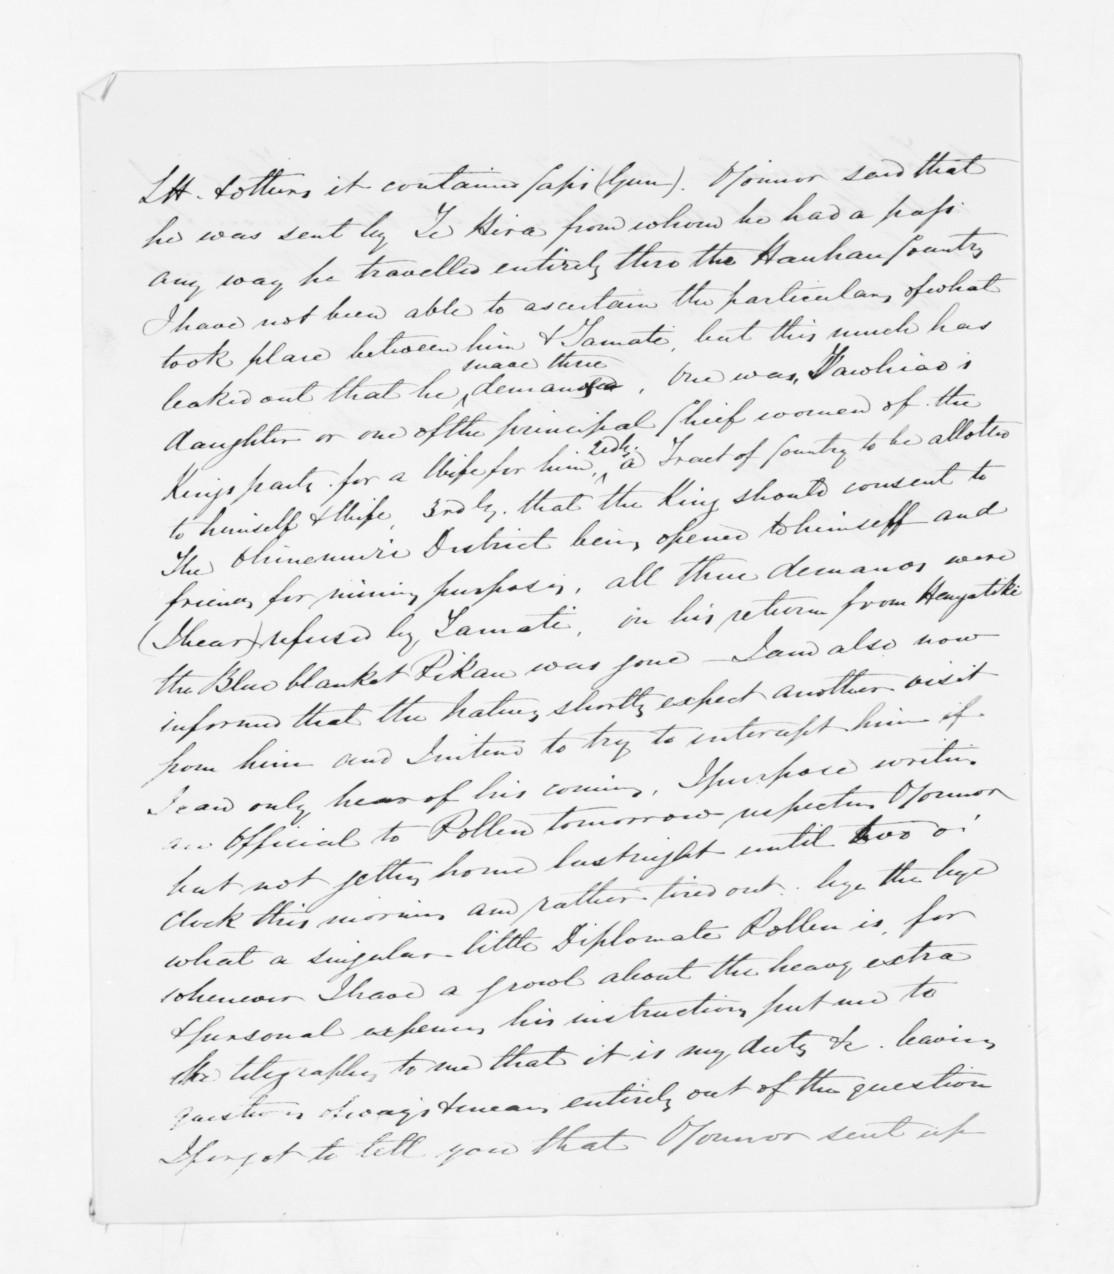 & others it contained caps (Gun). O'Connor said that
he was sent by Te Hira from whom he had a pass
any way he travelled entirely thro the Hauhau Country
I have not been able to ascertain the particulars of what
took place between him & Tamati, but this much has
leaked out that he made three demands, One was, Tawhiao's
daughter or one of the principal Chief women of the
Kings party for a Wife for him, 2ndly. a Tract of Country to be allotted
to himself & Wife, 3rdly. that the King should consent to
The Ohinemuri District being opened to himself and
friends for mining purposes, all these demands were
(I hear) refused by Tamati, on his return from Hangatiki
the Blue blanket Pikau was gone — I am also now
informed that the Natives shortly expect another visit
from him and I intend to try to intercept him if
I can only hear of his coming, I purpose writing
an Official to Pollen tomorrow respecting O'Connor
but not getting home last night until two o'
clock this morning am rather tired out. bye the bye
what a singular little Diplomate Pollen is, for
whenever I have a growl about the heavy extra
& personal expenses his instructions put me to
He telegraphs to me that it is my duty &c. leaving
questions of ways & means entirely out of the question
I forgot to tell you that O'Connor sent up